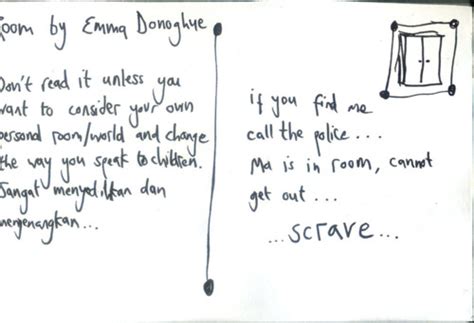 Room by Emma Donoghue
Don't read it unless you
want to consider your own
personal room/world and change
the way you speak to children.
Sangat menyedihkan dan
menyenangkan...
if you find me
call the police...
Ma is in room, cannot
get out...
...scrave...